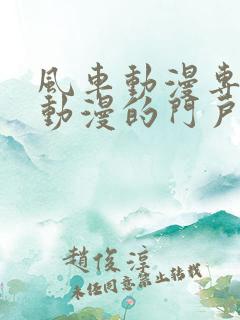 風車動漫專
動漫的門戶
趙俊淳
未任同意禁止轉載